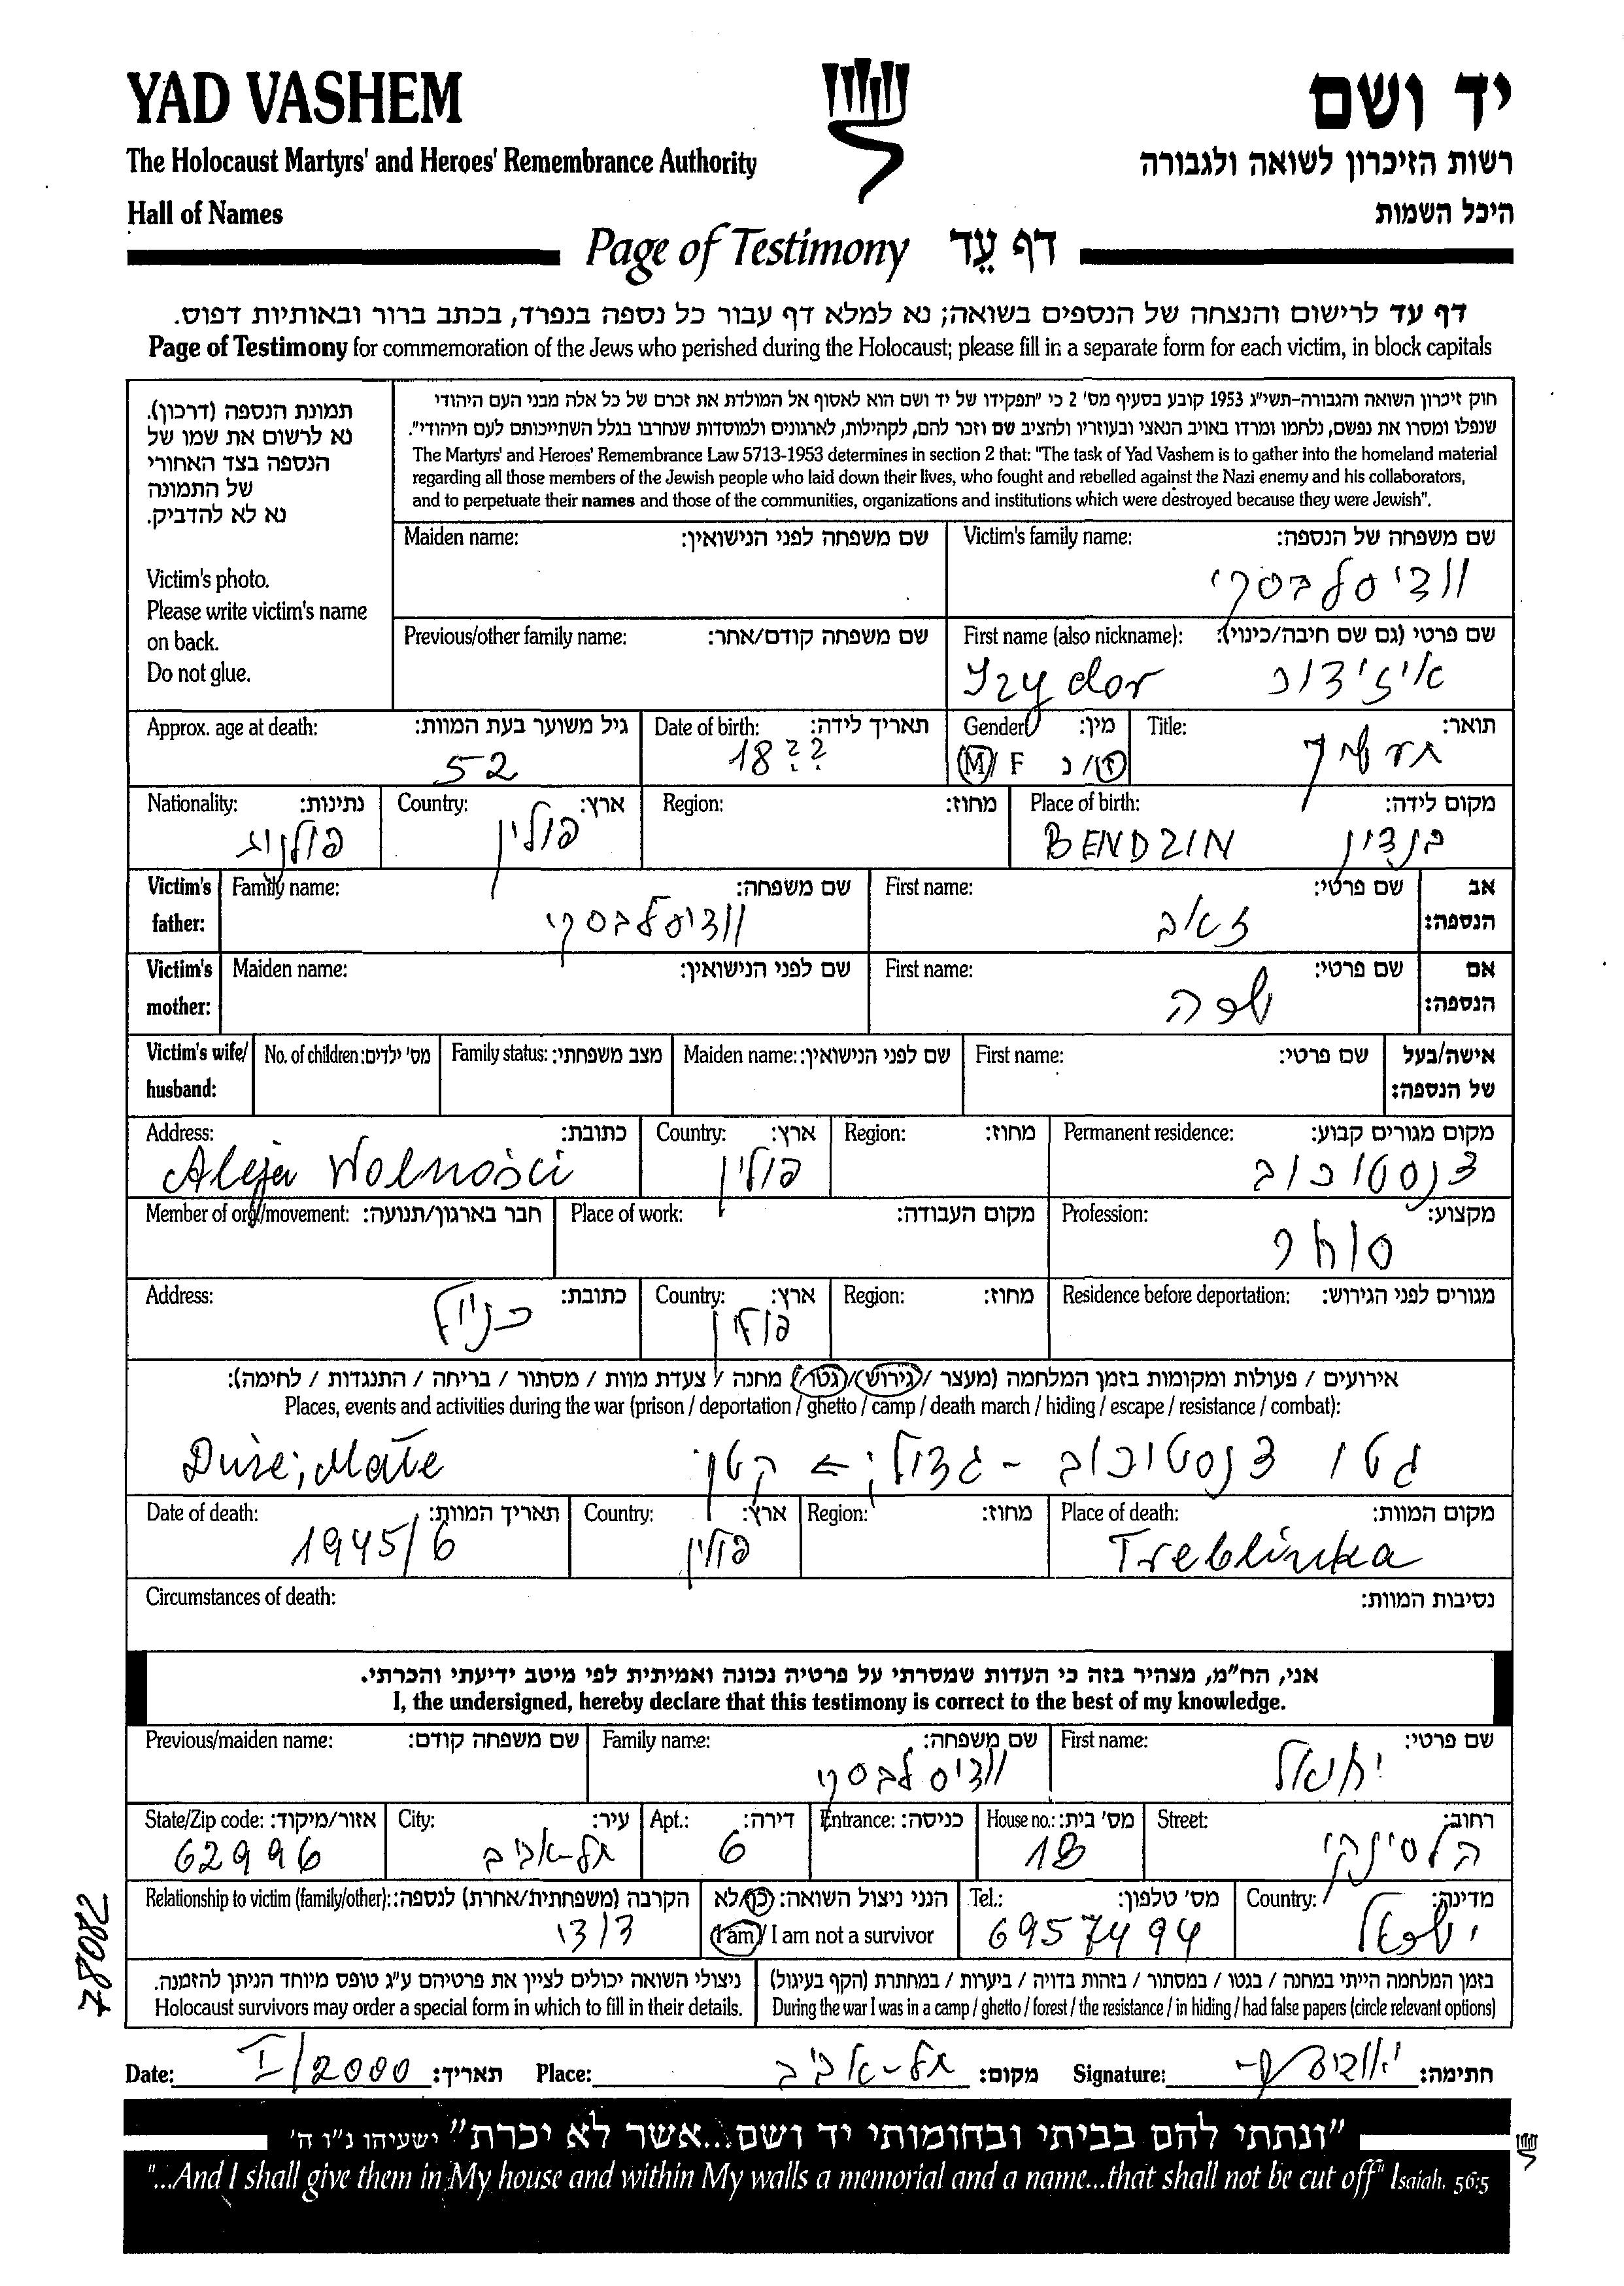 YAD VASHEM
יד ושם
The Holocaust Martyrs' and Heroes' Remembrance Authority
רשות הזיכרון לשואה ולגבורה
Hall of Names
היכל השמות
Page of Testimony דף עֵד
דף עד לרישום והנצחה של הנספים בשואה; נא למלא דף עבור כל נספה בנפרד, בכתב ברור ובאותיות דפוס.
Page of Testimony for commemoration of the Jews who perished during the Holocaust; please fill in a separate form for each victim, in block capitals
תמונת הנספה (דרכון).
נא לרשום את שמו של
הנספה בצד האחורי
של התמונה
נא לא להדביק.
Victim's photo.
Please write victim's name
on back.
Do not glue.
חוק זיכרון השואה והגבורה-תשי"ג 1953 קובע בסעיף מס' 2 כי "תפקידו של יד ושם הוא לאסוף אל המולדת את זכרם של כל אלה מבני העם היהודי
שנפלו ומסרו את נפשם, נלחמו ומרדו באויב הנאצי ובעוזריו ולהציב שם וזכר להם, לקהילות, לארגונים ולמוסדות שנחרבו בגלל השתייכותם לעם היהודי".
The Martyrs' and Heroes' Remembrance Law 5713-1953 determines in section 2 that: "The task of Yad Vashem is to gather into the homeland material
regarding all those members of the Jewish people who laid down their lives, who fought and rebelled against the Nazi enemy and his collaborators,
and to perpetuate their names and those of the communities, organizations and institutions which were destroyed because they were Jewish".
Maiden name: שם משפחה לפני הנישואין:
Victim's family name: שם משפחה של הנספה:
וודיסלבסקי
Previous/other family name: שם משפחה קודם/אחר:
First name (also nickname): שם פרטי (גם שם חיבה/כינוי):
Izydor איזידור
Approx. age at death: גיל משוער בעת המוות:
52
Date of birth: תאריך לידה:
18??
Gender: מין:
M/ F ז/נ
Title: תואר:
Nationality: נתינות:
Country: ארץ:
פולין
Region: מחוז:
Place of birth: מקום לידה:
BENDZIN בנדין
Victim's father: Family name: שם משפחה:
וודיסלבסקי
First name: שם פרטי:
זאב
אב הנספה:
Victim's mother: Maiden name: שם לפני הנישואין:
First name: שם פרטי:
אם הנספה:
Victim's wife/ husband:
No. of children: מס' ילדים:
Family status: מצב משפחתי:
Maiden name: שם לפני הנישואין:
First name: שם פרטי:
אישה/בעל של הנספה:
Address: כתובת:
Aleja Wolności
Country: ארץ:
פולין
Region: מחוז:
Permanent residence: מקום מגורים קבוע:
צנסטוכוב
Member of org./movement: חבר בארגון/תנועה:
Place of work: מקום העבודה:
Profession: מקצוע:
סוחר
Address: כתובת:
כנ"ל
Country: ארץ:
פולין
Region: מחוז:
Residence before deportation: מגורים לפני הגירוש:
אירועים / פעולות ומקומות בזמן המלחמה (מעצר / גירוש / גטו / מחנה / צעדת מוות / מסתור / בריחה / התנגדות / לחימה):
Places, events and activities during the war (prison / deportation / ghetto / camp / death march / hiding / escape / resistance / combat):
גטו צנסטוכוב - גדול; → קטן
Duże; Małe
Date of death: תאריך המוות:
1945/6
Country: ארץ:
פולין
Region: מחוז:
Place of death: מקום המוות:
Treblinka
Circumstances of death: נסיבות המוות:
אני, הח"מ, מצהיר בזה כי העדות שמסרתי על פרטיה נכונה ואמיתית לפי מיטב ידיעתי והכרתי.
I, the undersigned, hereby declare that this testimony is correct to the best of my knowledge.
Previous/maiden name: שם משפחה קודם:
Family name: שם משפחה:
וודיסלבסקי
First name: שם פרטי:
יחיאל
State/Zip code: אזור/מיקוד:
62996
City: עיר:
תל-אביב
Apt.: דירה:
6
Entrance: כניסה:
House no.: מס' בית:
18
Street: רחוב:
הלסינקי
Relationship to victim (family/other): הקרבה (משפחתית/אחרת) לנספה:
דודי
הנני ניצול השואה: כן/לא
I am/ I am not a survivor
Tel.: מס' טלפון:
6957494
Country: מדינה:
ישראל
ניצולי השואה יכולים לציין את פרטיהם ע"ג טופס מיוחד הניתן להזמנה.
Holocaust survivors may order a special form in which to fill in their details.
בזמן המלחמה הייתי במחנה / בגטו / במסתור / בזהות בדויה / ביערות / במחתרת (הקף בעיגול)
During the war I was in a camp / ghetto / forest / the resistance / in hiding / had false papers (circle relevant options)
78082
Date: I/2000 תאריך:
Place: תל-אביב מקום:
Signature: חתימה:
"ונתתי להם בביתי ובחומותי יד ושם...אשר לא יכרת" ישעיהו נ"ו ה'
"...And I shall give them in My house and within My walls a memorial and a name...that shall not be cut off" Isaiah, 56:5